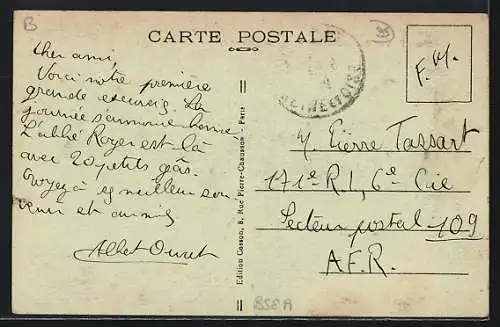 B
CARTE POSTALE
95
F.M.
Cher ami,
Voici notre première
grande excursio. La
journée s'annonce bonne
L'abbé Royer est là
avec 20 petits gâs.
Croyez à meilleur sou
venir et
Albert
Edition Cosson, 8, Rue Pierre-Chausson - Paris
M. Pierre Tassart
171e R.I, 6e Cie
Secteur postal 109
A.F.R.
B58A